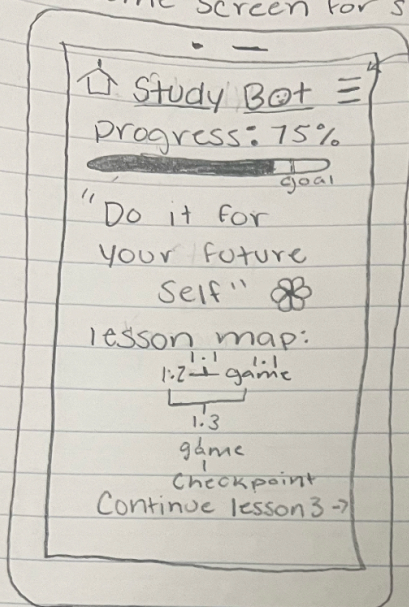 me screen for s
Study Bot
progress: 75%
goal
"Do it for
your future
self"
lesson map:
1.1 1.1
1.2 game
1.3
game
Checkpoint
Continue lesson 3 →